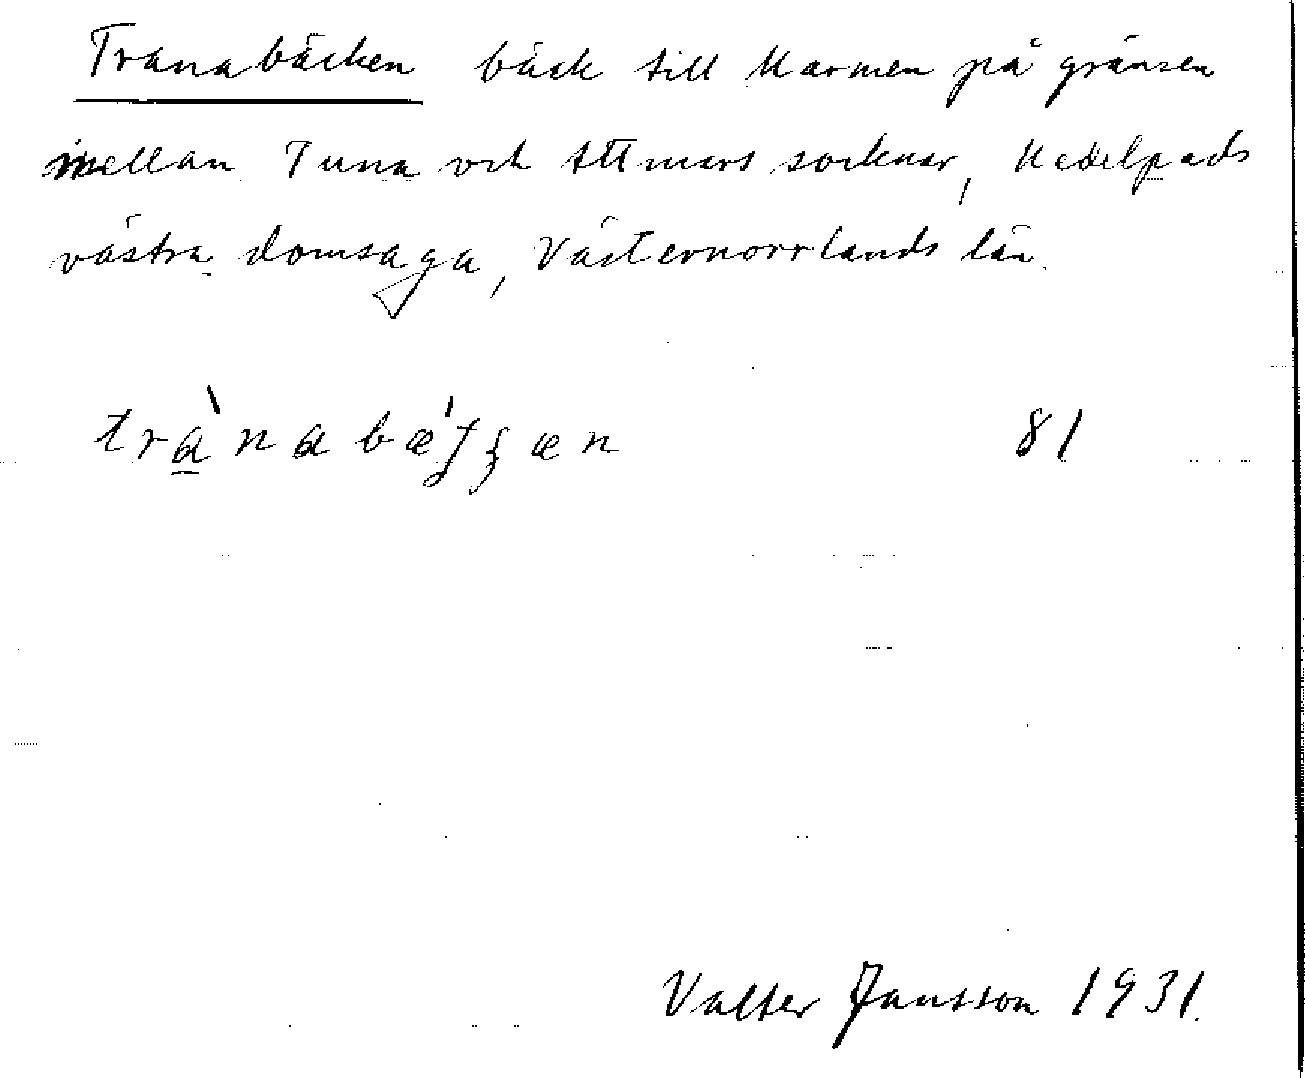 Tranabäcken bäck till Marmen på gränsen
mellan Tuna och Attmars socknar, Medelpads
västra domsaga, Västernorrlands län.
trànabæ̀ʃʒæn 81
Valter Jansson 1931.